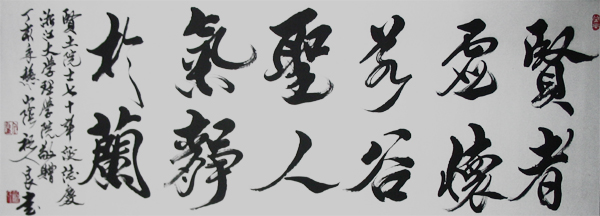 賢者
虛懷
若谷
聖人
氣靜
於蘭
賢土院士七十華誕誌慶
浙江大學理學院敬贈
丁亥年 山陰 祝人良書